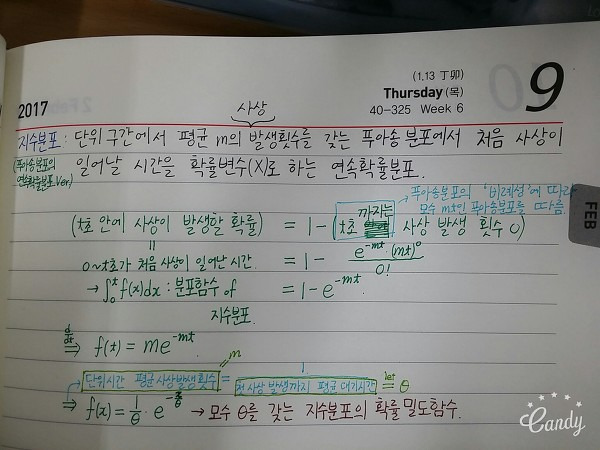 (1.13 丁卯)
2017 Thursday(목) 09
40-325 Week 6
사상
지수분포 : 단위 구간에서 평균 m의 발생횟수를 갖는 푸아송 분포에서 처음 사상이
(푸아송분포의 연속확률분포 Ver.) 일어날 시간을 확률변수(X)로 하는 연속확률분포.
푸아송분포의 '비례성'에 따라
모수 mt인 푸아송분포를 따름.
까지는
(t초 안에 사상이 발생할 확률) = 1 - (t초 사상 발생 횟수 0)
0~t초가 처음 사상이 일어난 시간. = 1 - e^-mt · (mt)^0 / 0!
→ ∫₀ᵗ f(x)dx : 분포함수 of = 1 - e^-mt.
지수분포.
d/dt ⇒ f(t) = me^-mt.
m
단위시간 평균 사상발생횟수 = 1 / 첫 사상 발생까지 평균 대기시간 let = θ
⇒ f(x) = 1/θ · e^-x/θ → 모수 θ를 갖는 지수분포의 확률밀도함수.
FEB
Candy